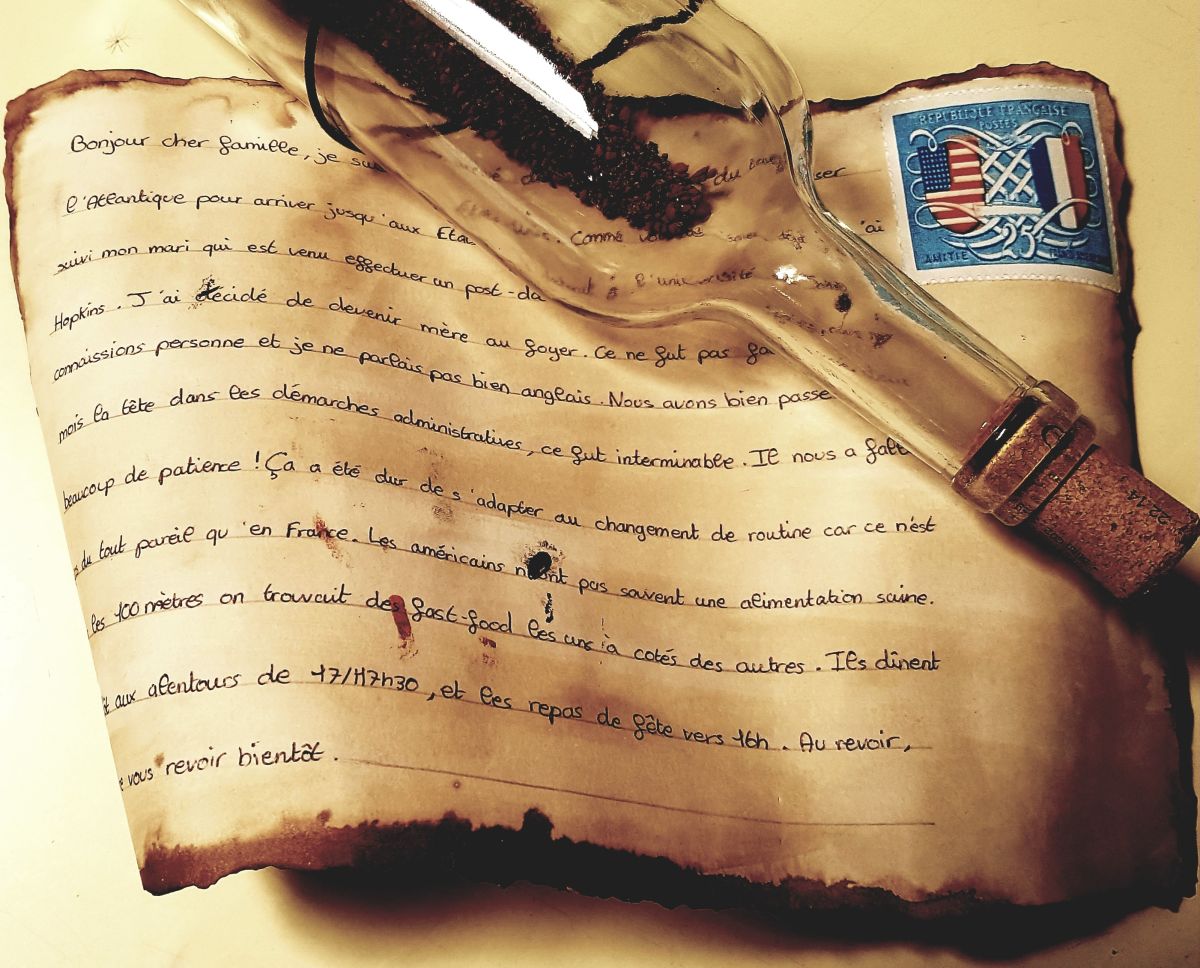 Bonjour cher famille, je du ser
l'Atlantique pour arriver jusqu'aux Etat . Comme 'ai
suivi mon mari qui est venu effectuer un post-do à l'université
Hopkins. J'ai décidé de devenir mère au foyer. Ce ne fut pas fa
connaissions personne et je ne parlais pas bien anglais. Nous avons bien passé
mois la tête dans les démarches administratives, ce fut interminable. Il nous a fallu
beaucoup de patience ! Ça a été dur de s'adapter au changement de routine car ce n'est
du tout pareil qu'en France. Les américains n'ont pas souvent une alimentation saine.
les 100 mètres on trouvait des fast-food les uns à cotés des autres. Ils dînent
aux alentours de 17/17h30, et les repas de fête vers 16h. Au revoir,
vous revoir bientôt.
REPUBLIQUE FRANÇAISE
POSTES
25
AMITIE
2214